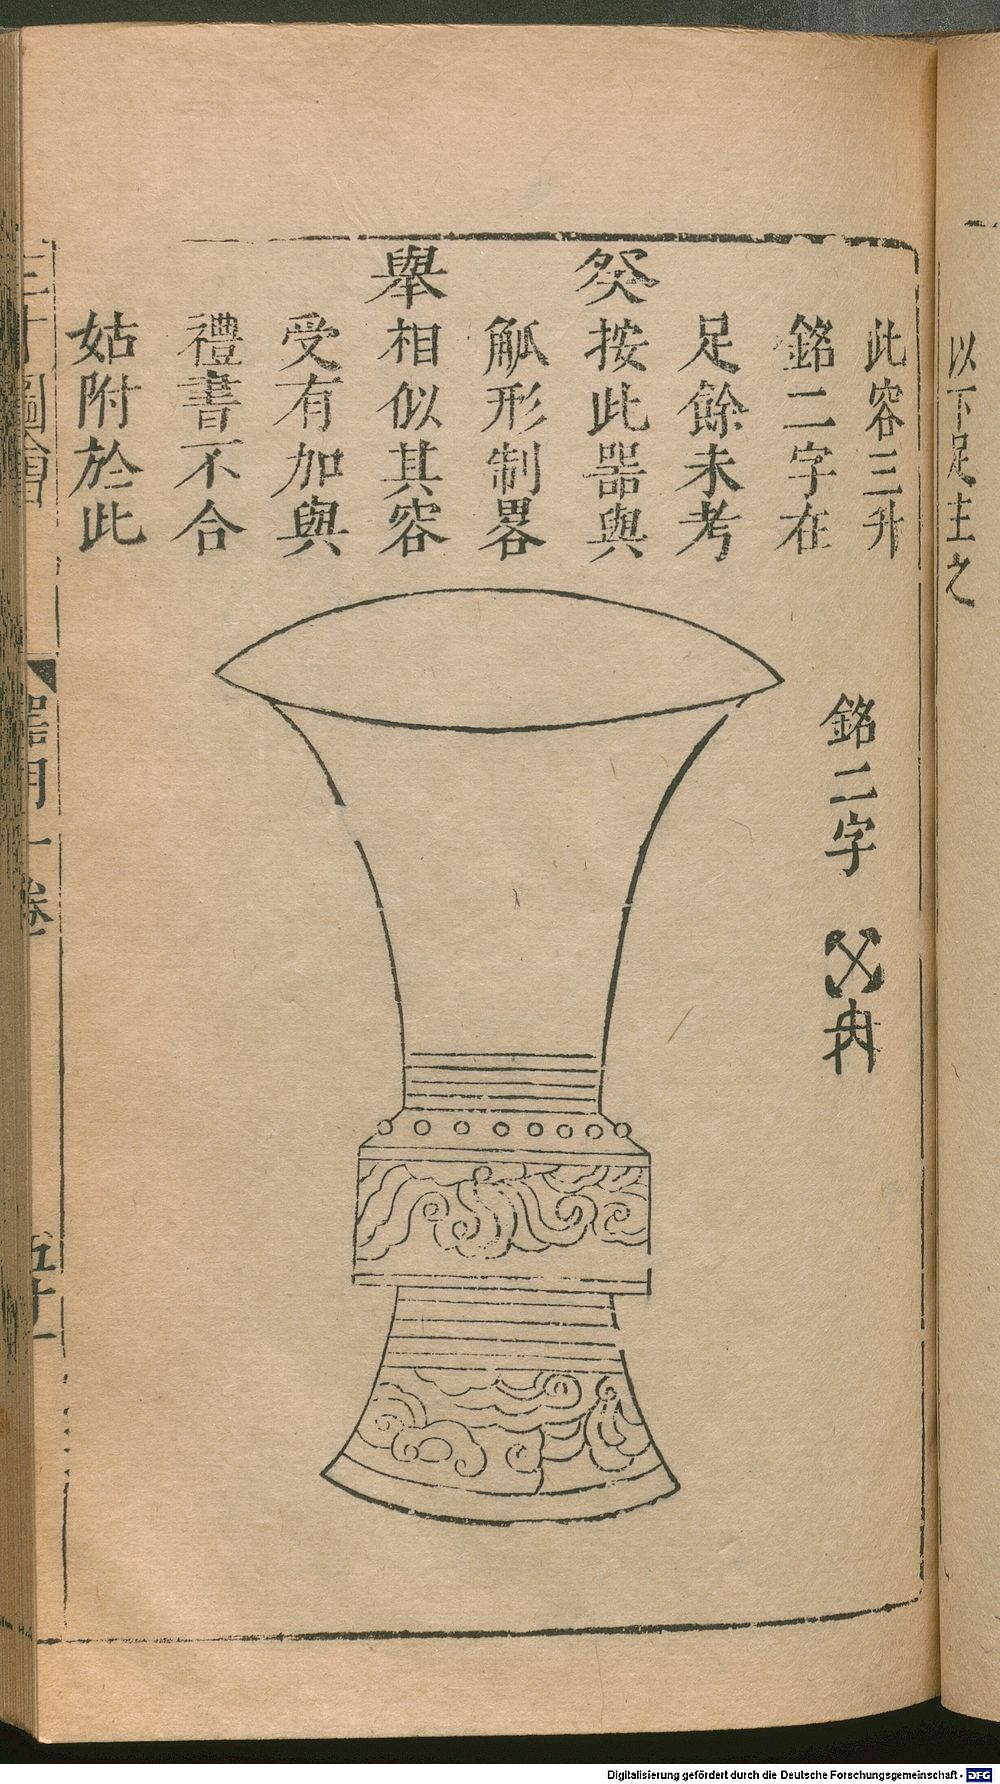 以下足主之
癸舉
此容三升
銘二字在
足餘未考
按此器與
觚形制畧
相似其容
受有加與
禮書不合
姑附於此
銘二字
三才圖會
器用一卷
五十一
Digitalisierung gefördert durch die Deutsche Forschungsgemeinschaft - DFG